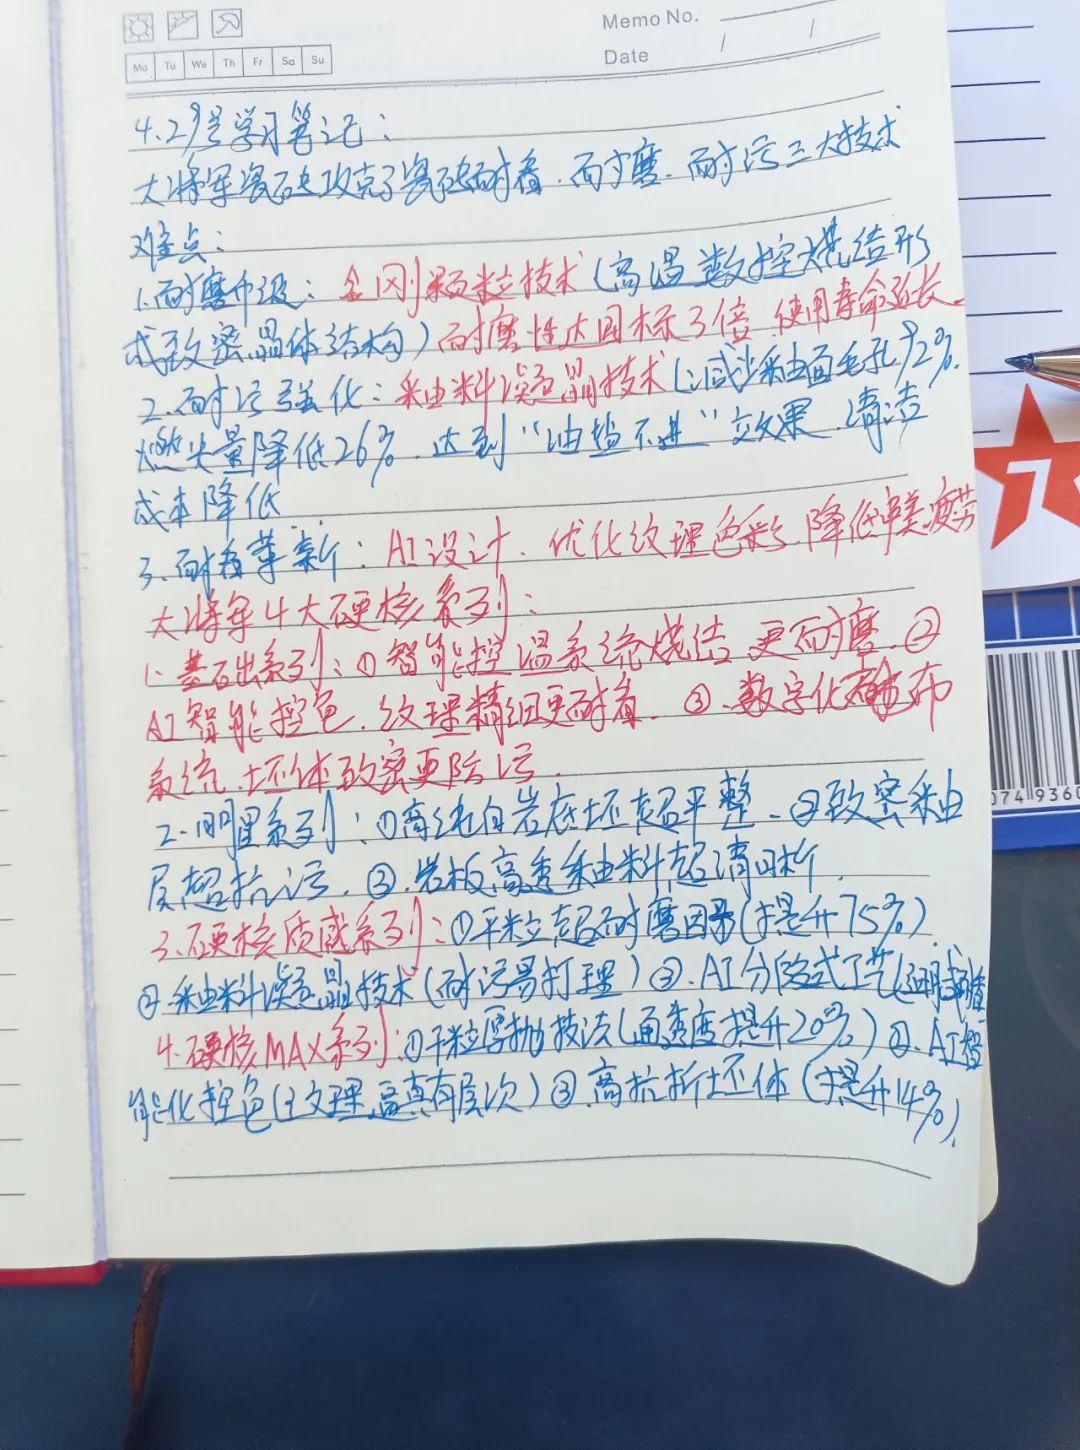 Memo No.
Mo Tu We Th Fr Sa Su
Date / /
4.29号学习笔记:
大将军瓷砖攻克了瓷砖耐看.耐磨.耐污三大技术
难点:
1.耐磨升级:金刚颗粒技术(高温数控烧结形
成致密晶体结构)耐磨性达国标3倍 使用寿命延长.
2.耐污强化:釉料凝晶技术(减少釉面毛孔92%.
燃失量降低26%.达到“油盐不进”效果.清洁
成本降低
3.耐看革新:AI设计.优化纹理色彩 降低审美疲劳
大将军4大硬核系列:
1.基石出系列:①智能控温系统烧结 更耐磨.②
AI智能控色.纹理精细更耐看.③.数字化布
系统.坯体致密更防污.
2.系列:①高纯白岩底坯超平整.②致密釉
层超抗污.③.岩板高透釉料超清晰.
3.硬核质感系列:①干粒超耐磨因子(提升75%).
②.釉料凝晶技术(耐污易打理)③.AI分段式工艺(
4.硬核MAX系列:①干粒厚抛技法(通透度提升20%)②.AI智
能化控色(纹理逼真有层次)③.高抗折坯体(提升14%).
074936